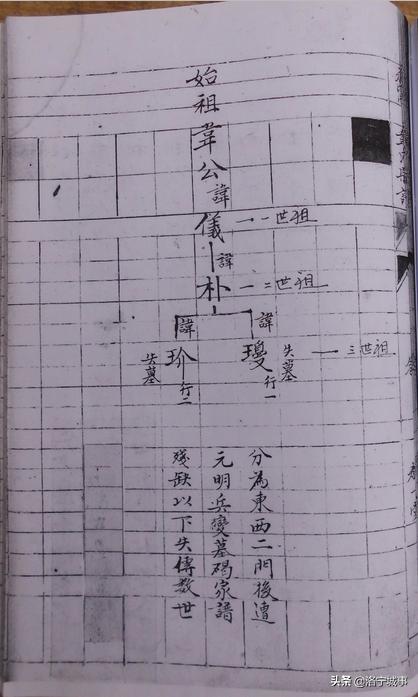 始祖韋公諱儀 一世祖
諱朴 二世祖
諱瓊 行一 失墓 三世祖
諱玠 行二 失墓
分為東西二門後遭
元明兵變墓碣家譜
殘缺以下失傳數世
头条 @洛宁城事